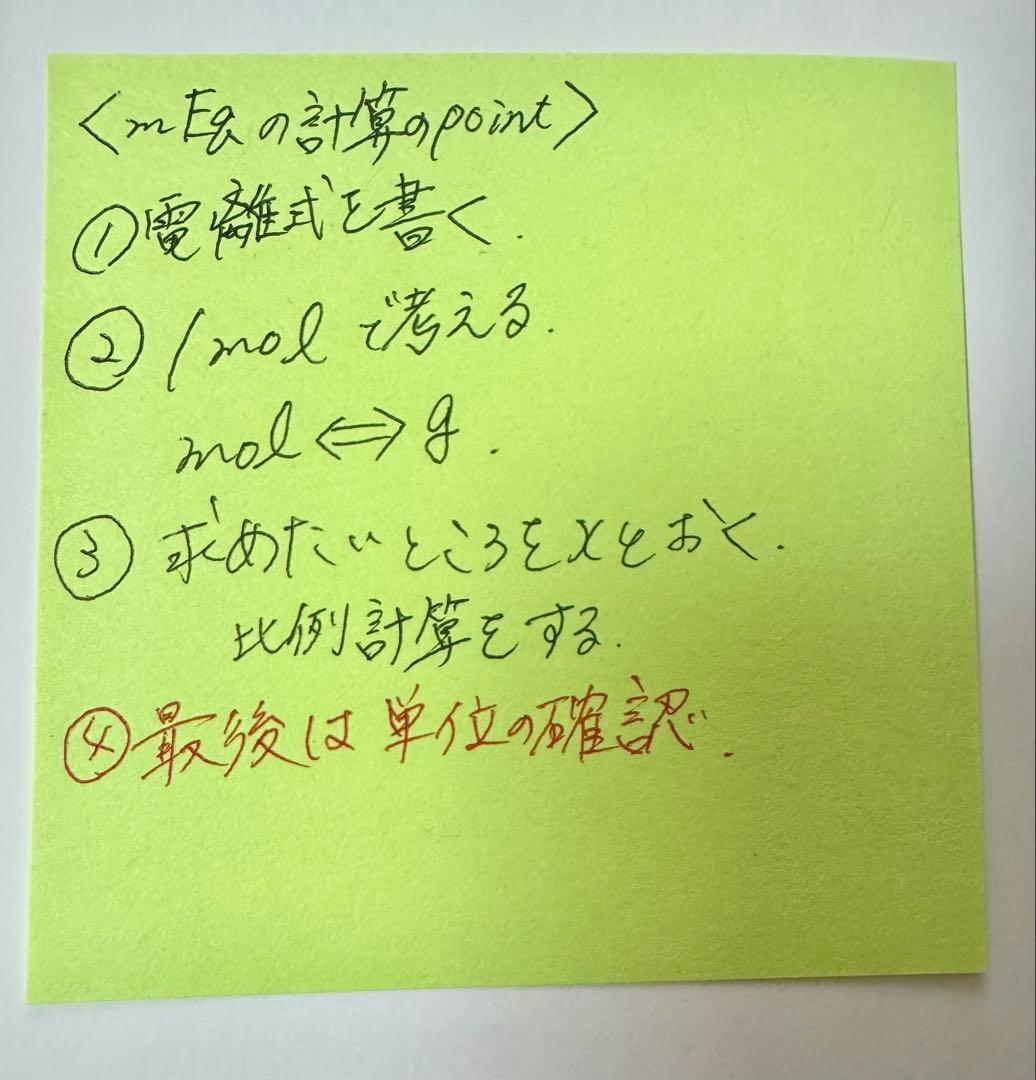 〈mEqの計算のpoint〉
①電離式を書く.
②1molで考える.
mol⇔g.
③求めたいところをxとおく.
比例計算をする.
④最後は単位の確認.